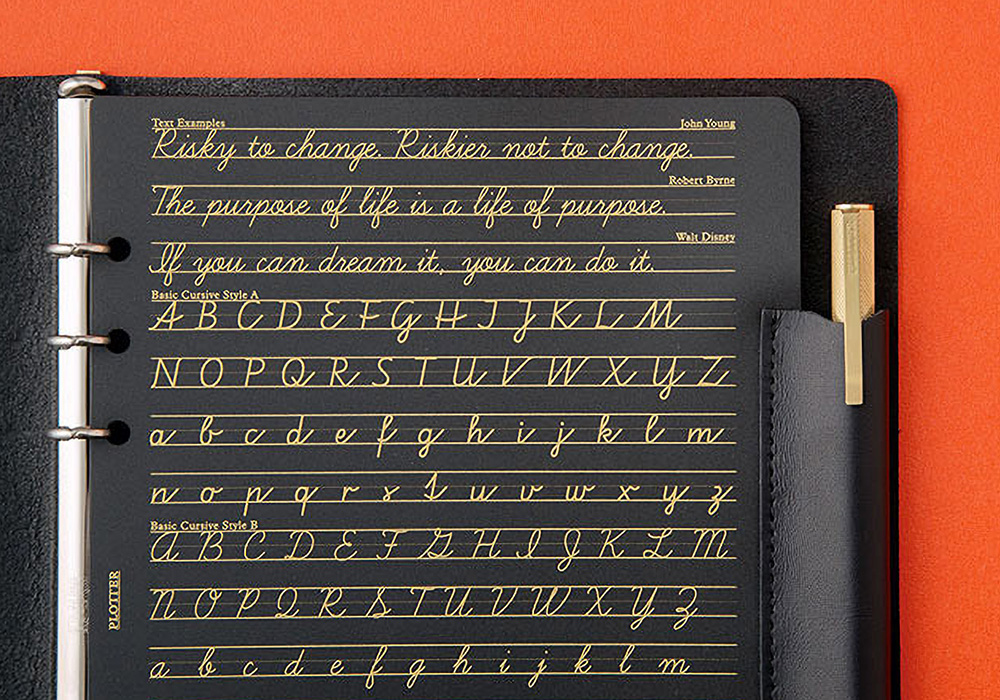 Text Examples John Young
Risky to change. Riskier not to change.
Robert Byrne
The purpose of life is a life of purpose.
Walt Disney
If you can dream it, you can do it.
Basic Cursive Style A
A B C D E F G H I J K L M
N O P Q R S T U V W X Y Z
a b c d e f g h i j k l m
n o p q r s t u v w x y z
Basic Cursive Style B
A B C D E F G H I J K L M
N O P Q R S T U V W X Y Z
a b c d e f g h i j k l m
PLOTTER